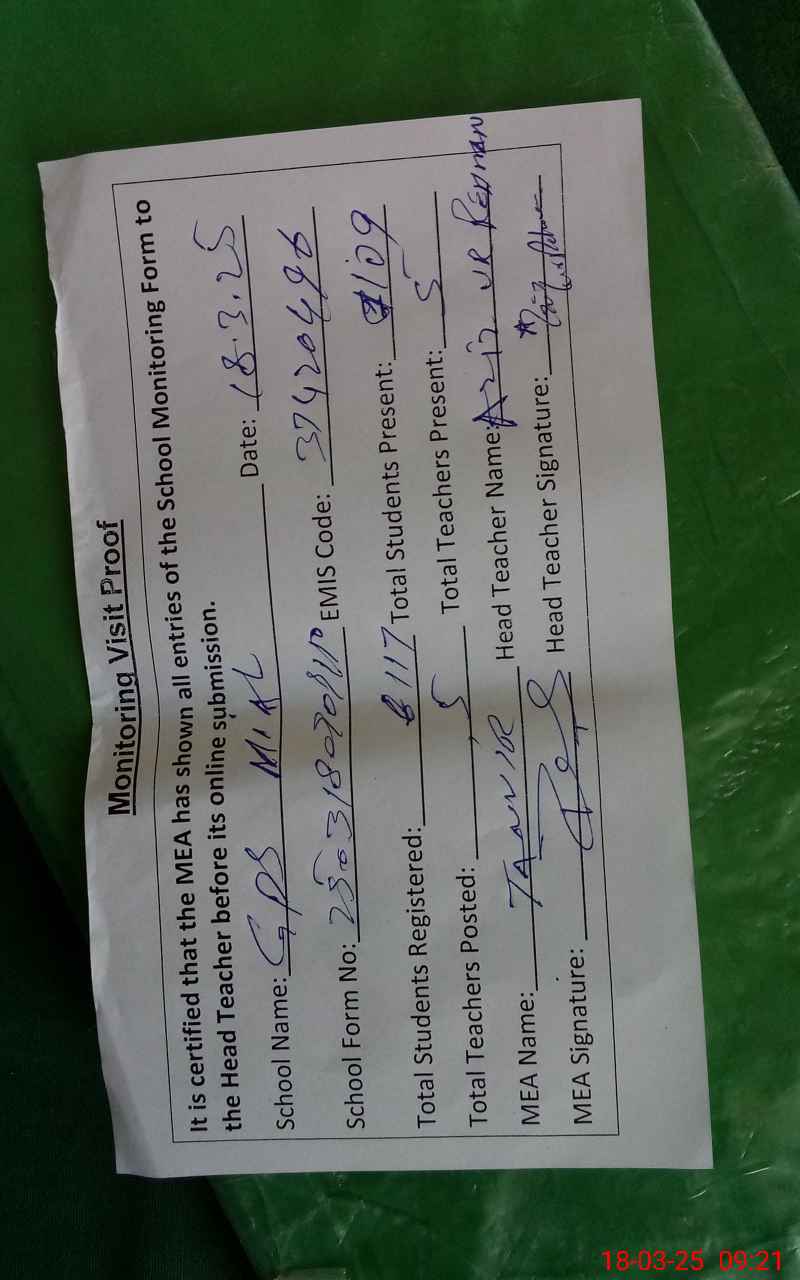 Monitoring Visit Proof
It is certified that the MEA has shown all entries of the School Monitoring Form to
the Head Teacher before its online submission.
School Name: GPS MIAL Date: 18.3.25
School Form No: EMIS Code: 37420496
Total Students Registered: 117 Total Students Present: 109
Total Teachers Posted: 5 Total Teachers Present: 5
MEA Name: TANVIR Head Teacher Name: Aziz UR REHMAN
MEA Signature: Head Teacher Signature:
18-03-25 09:21